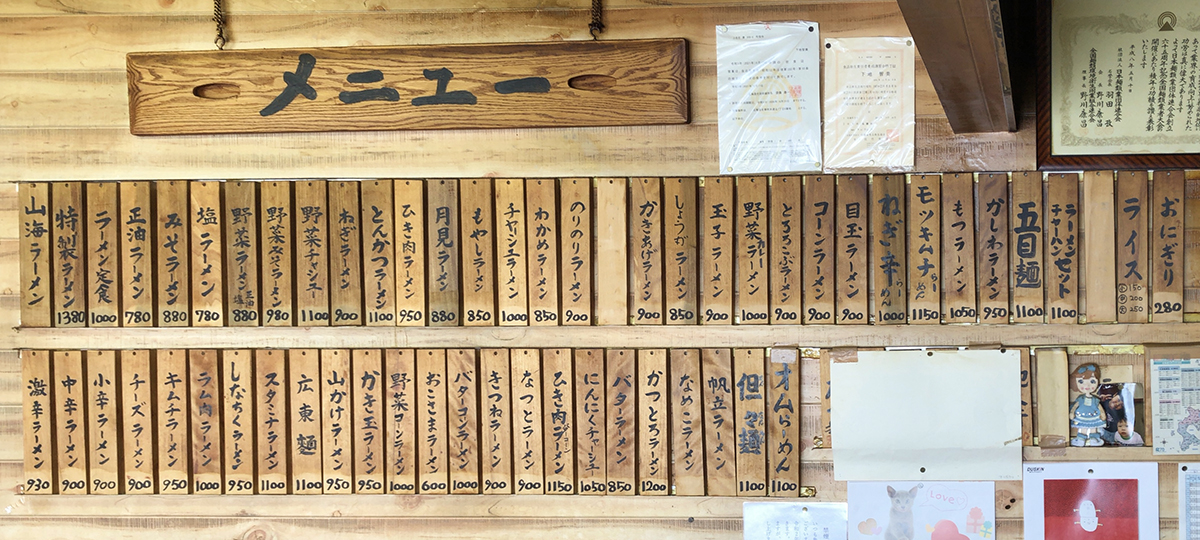 メニュー
山海ラーメン
特製ラーメン 1380
ラーメン定食 1000
正油ラーメン 780
みそラーメン 880
塩ラーメン 780
野菜ラーメン 正油 塩 880
野菜みそラーメン 980
野菜チャーシュー 1100
ねぎラーメン 900
とんかつラーメン 1100
ひき肉ラーメン 950
月見ラーメン 880
もやしラーメン 850
チャーシューラーメン 1000
わかめラーメン 850
のりのりラーメン 900
かきあげラーメン 900
しょうがラーメン 850
玉子ラーメン 900
野菜カレーラーメン 1000
とろろこぶラーメン 900
コーンラーメン 900
目玉ラーメン 900
ねぎ辛らーめん 1000
モツキムチらーめん 1150
もつラーメン 1050
かしわラーメン 950
五目麺 1100
ラーメンチャーハンセット 1100
ライス 150 200 250
おにぎり 280
激辛ラーメン 930
中辛ラーメン 900
小辛ラーメン 900
チーズラーメン 900
キムチラーメン 950
ラム肉ラーメン 1000
しなちくラーメン 950
スタミナラーメン 1100
広東麺 1100
山かけラーメン 950
かき玉ラーメン 950
野菜コーンラーメン 1000
おこさまラーメン 600
バタコーンラーメン 1000
きつねラーメン 900
なっとラーメン 900
ひき肉バターコーンラーメン 1150
にんにくチャーシュー 1050
バターラーメン 850
かつとろラーメン 1200
なめこラーメン
帆立ラーメン
但々麺 1100
オムらーめん 1100
Love
DUSKIN